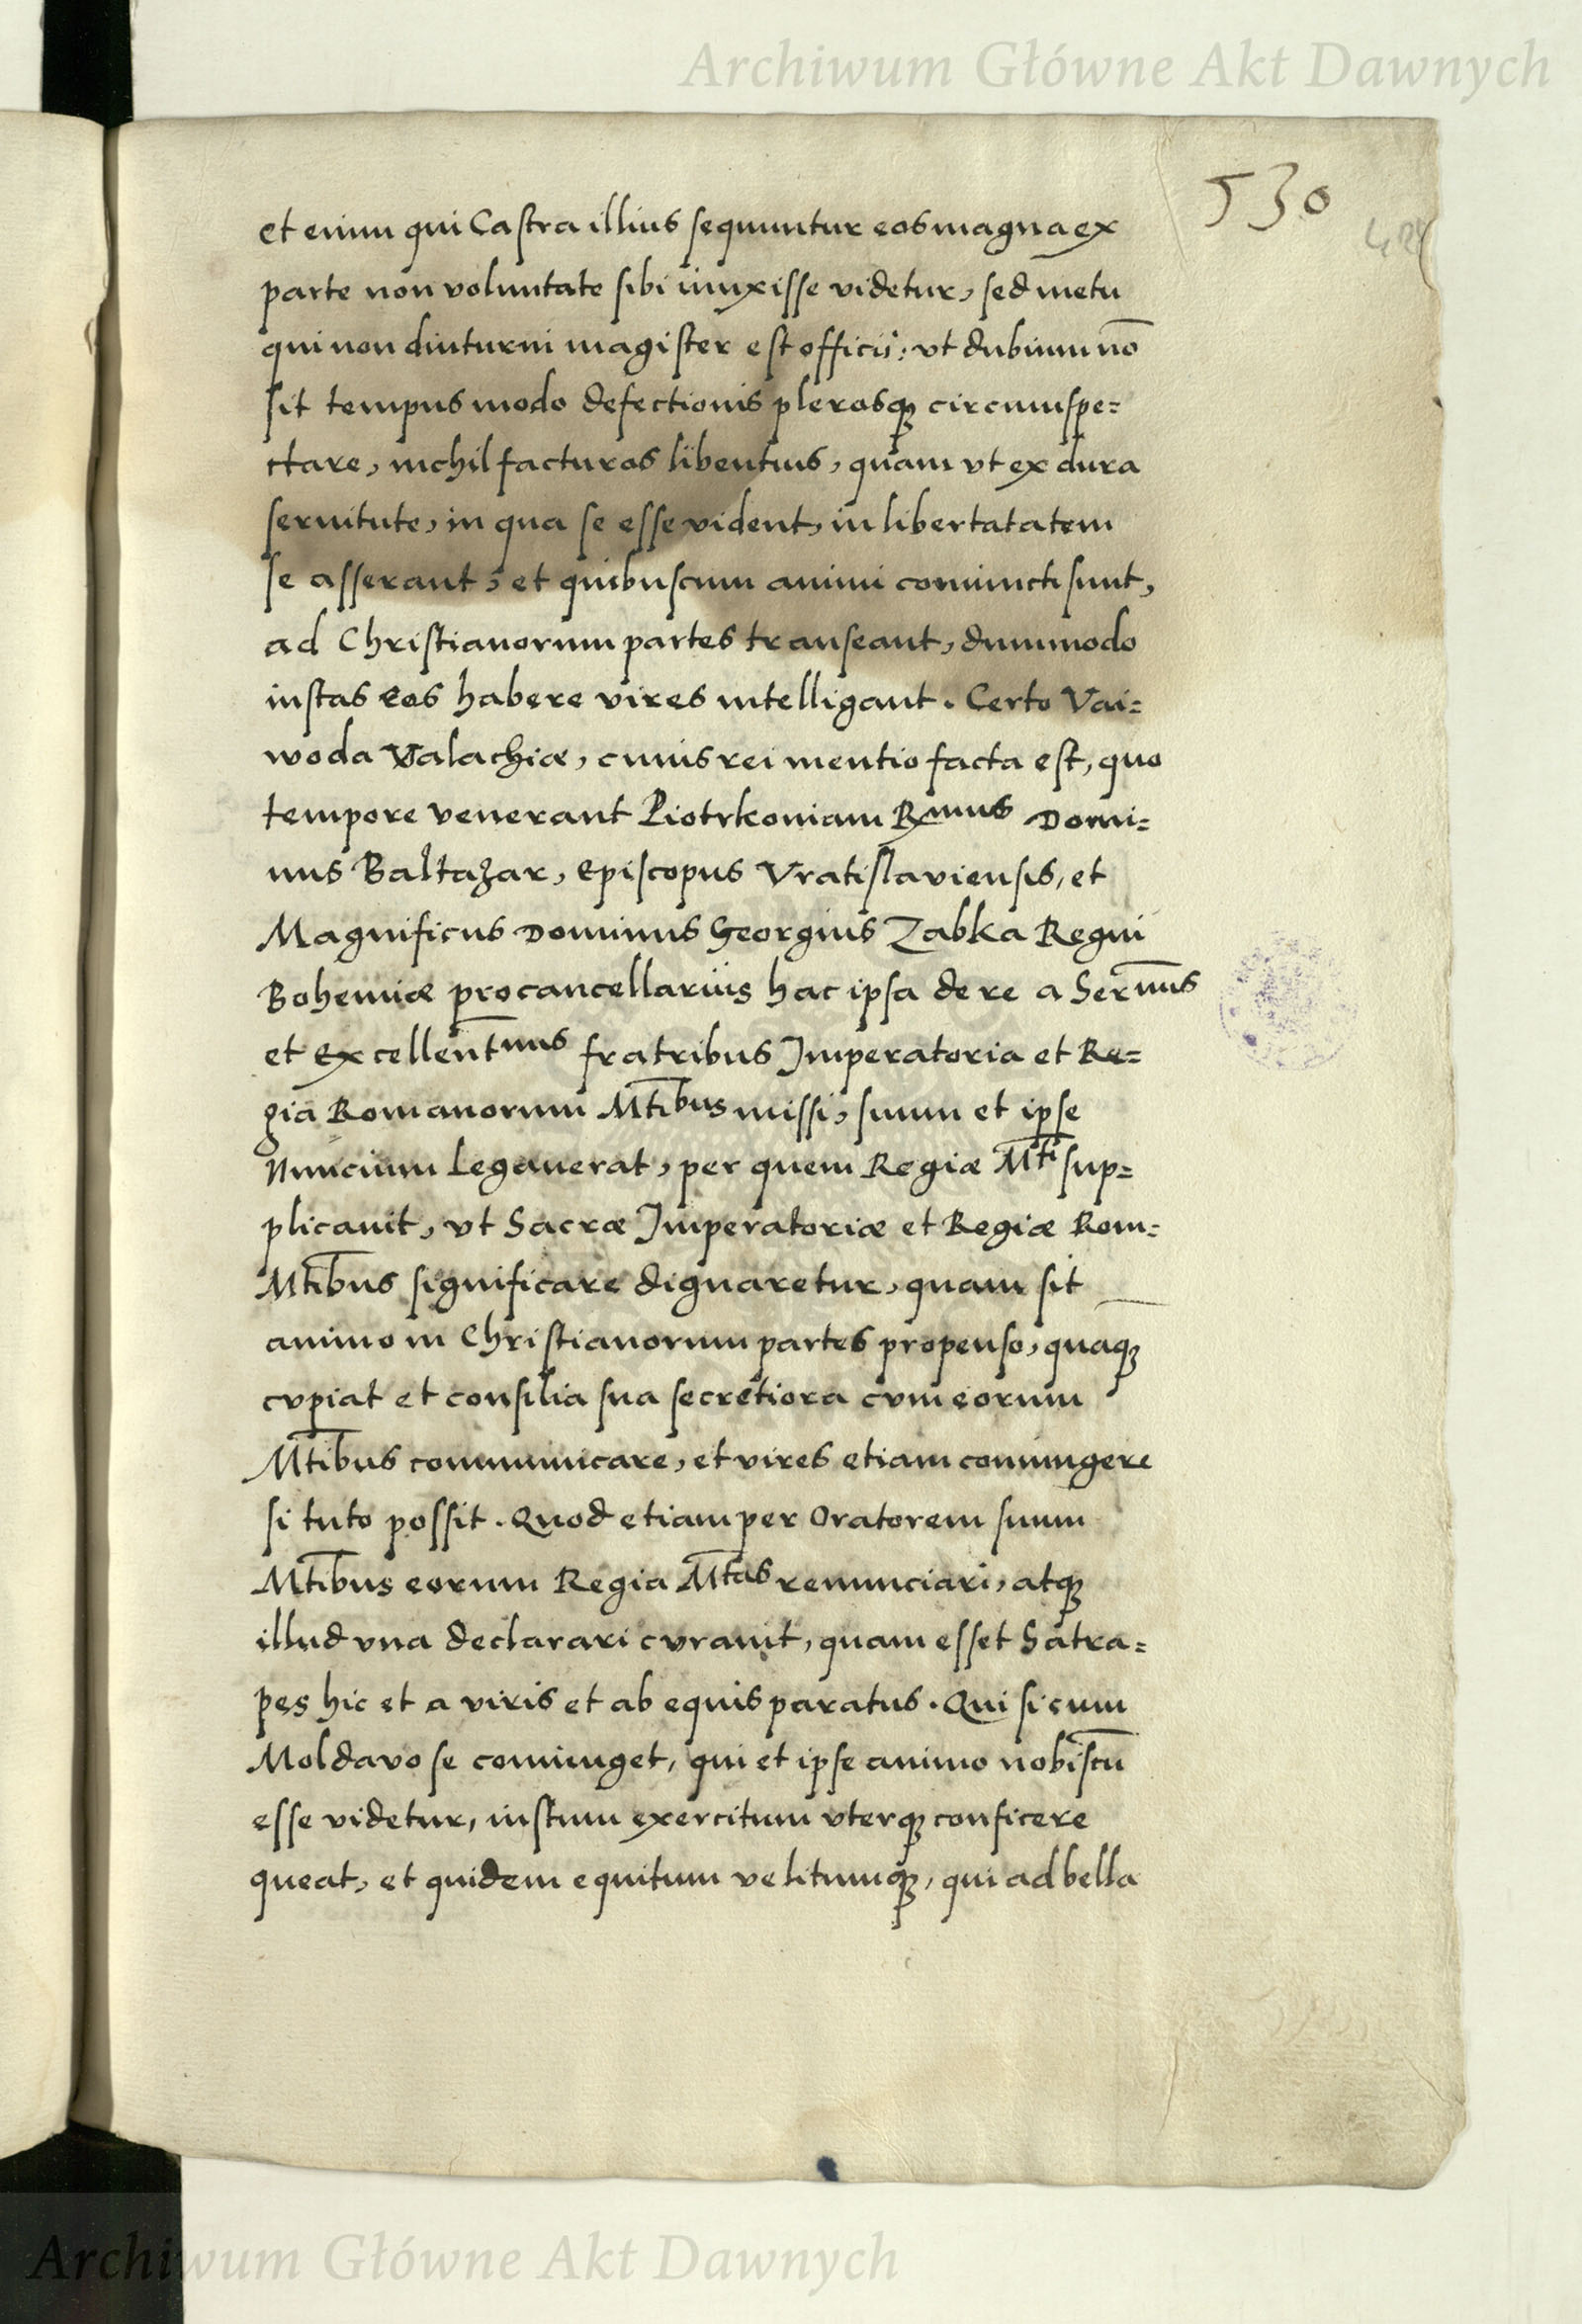 Archiwum Główne Akt Dawnych
530
et enim qui Castra illius sequuntur eos magna ex
parte non voluntate sibi iunxisse videtur, sed metu
qui non diuturni magister est officii: vt dubium nō
sit tempus modo defectionis plerosq; circumspe=
ctare, nichil facturos libentius, quam vt ex dura
seruitute, in qua se esse vident, in libertatatem
se asserant, et quibuscum animi coniuncti sunt,
ad Christianorum partes transeant, dummodo
iustas eos habere vires intelligant. Certo Vai=
woda Valachiæ, cuius rei mentio facta est, quo
tempore venerant Piotrkouiam Rmus Domi=
nus Baltazar, Episcopus Vratislaviensis, et
Magnificus Dominus Georgius Zabka Regni
Bohemiæ procancellarius hac ipsa de re a Sermus
et Excellentmus fratribus Imperatoria et Re=
gia Romanorum Mtibus missi, suum et ipse
Nuncium legauerat, per quem Regiæ Mti sup=
plicauit, vt Sacræ Imperatoriæ et Regiæ Rom=
Mtibus significare dignaretur, quam sit
animo in Christianorum partes propenso, quaq;
cvpiat et consilia sua secretiora cvm eorum
Mtibus communicare, et vires etiam coniungere
si tuto possit. Quod etiam per Oratorem suum
Mtibus eorum Regia Mtas renunciari, atq;
illud vna declarari cvrauit, quam esset Satra=
pes hic et a viris et ab equis paratus. Qui si cum
Moldavo se coniunget, qui et ipse animo nobiscū
esse videtur, iustum exercitum vterq; conficere
queat, et quidem equitum velitumq;, qui ad bella
Archiwum Główne Akt Dawnych